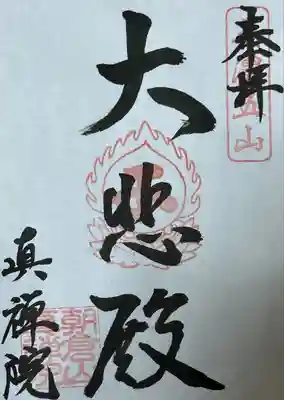 奉拝
大悲殿
眞禅院
朝倉山